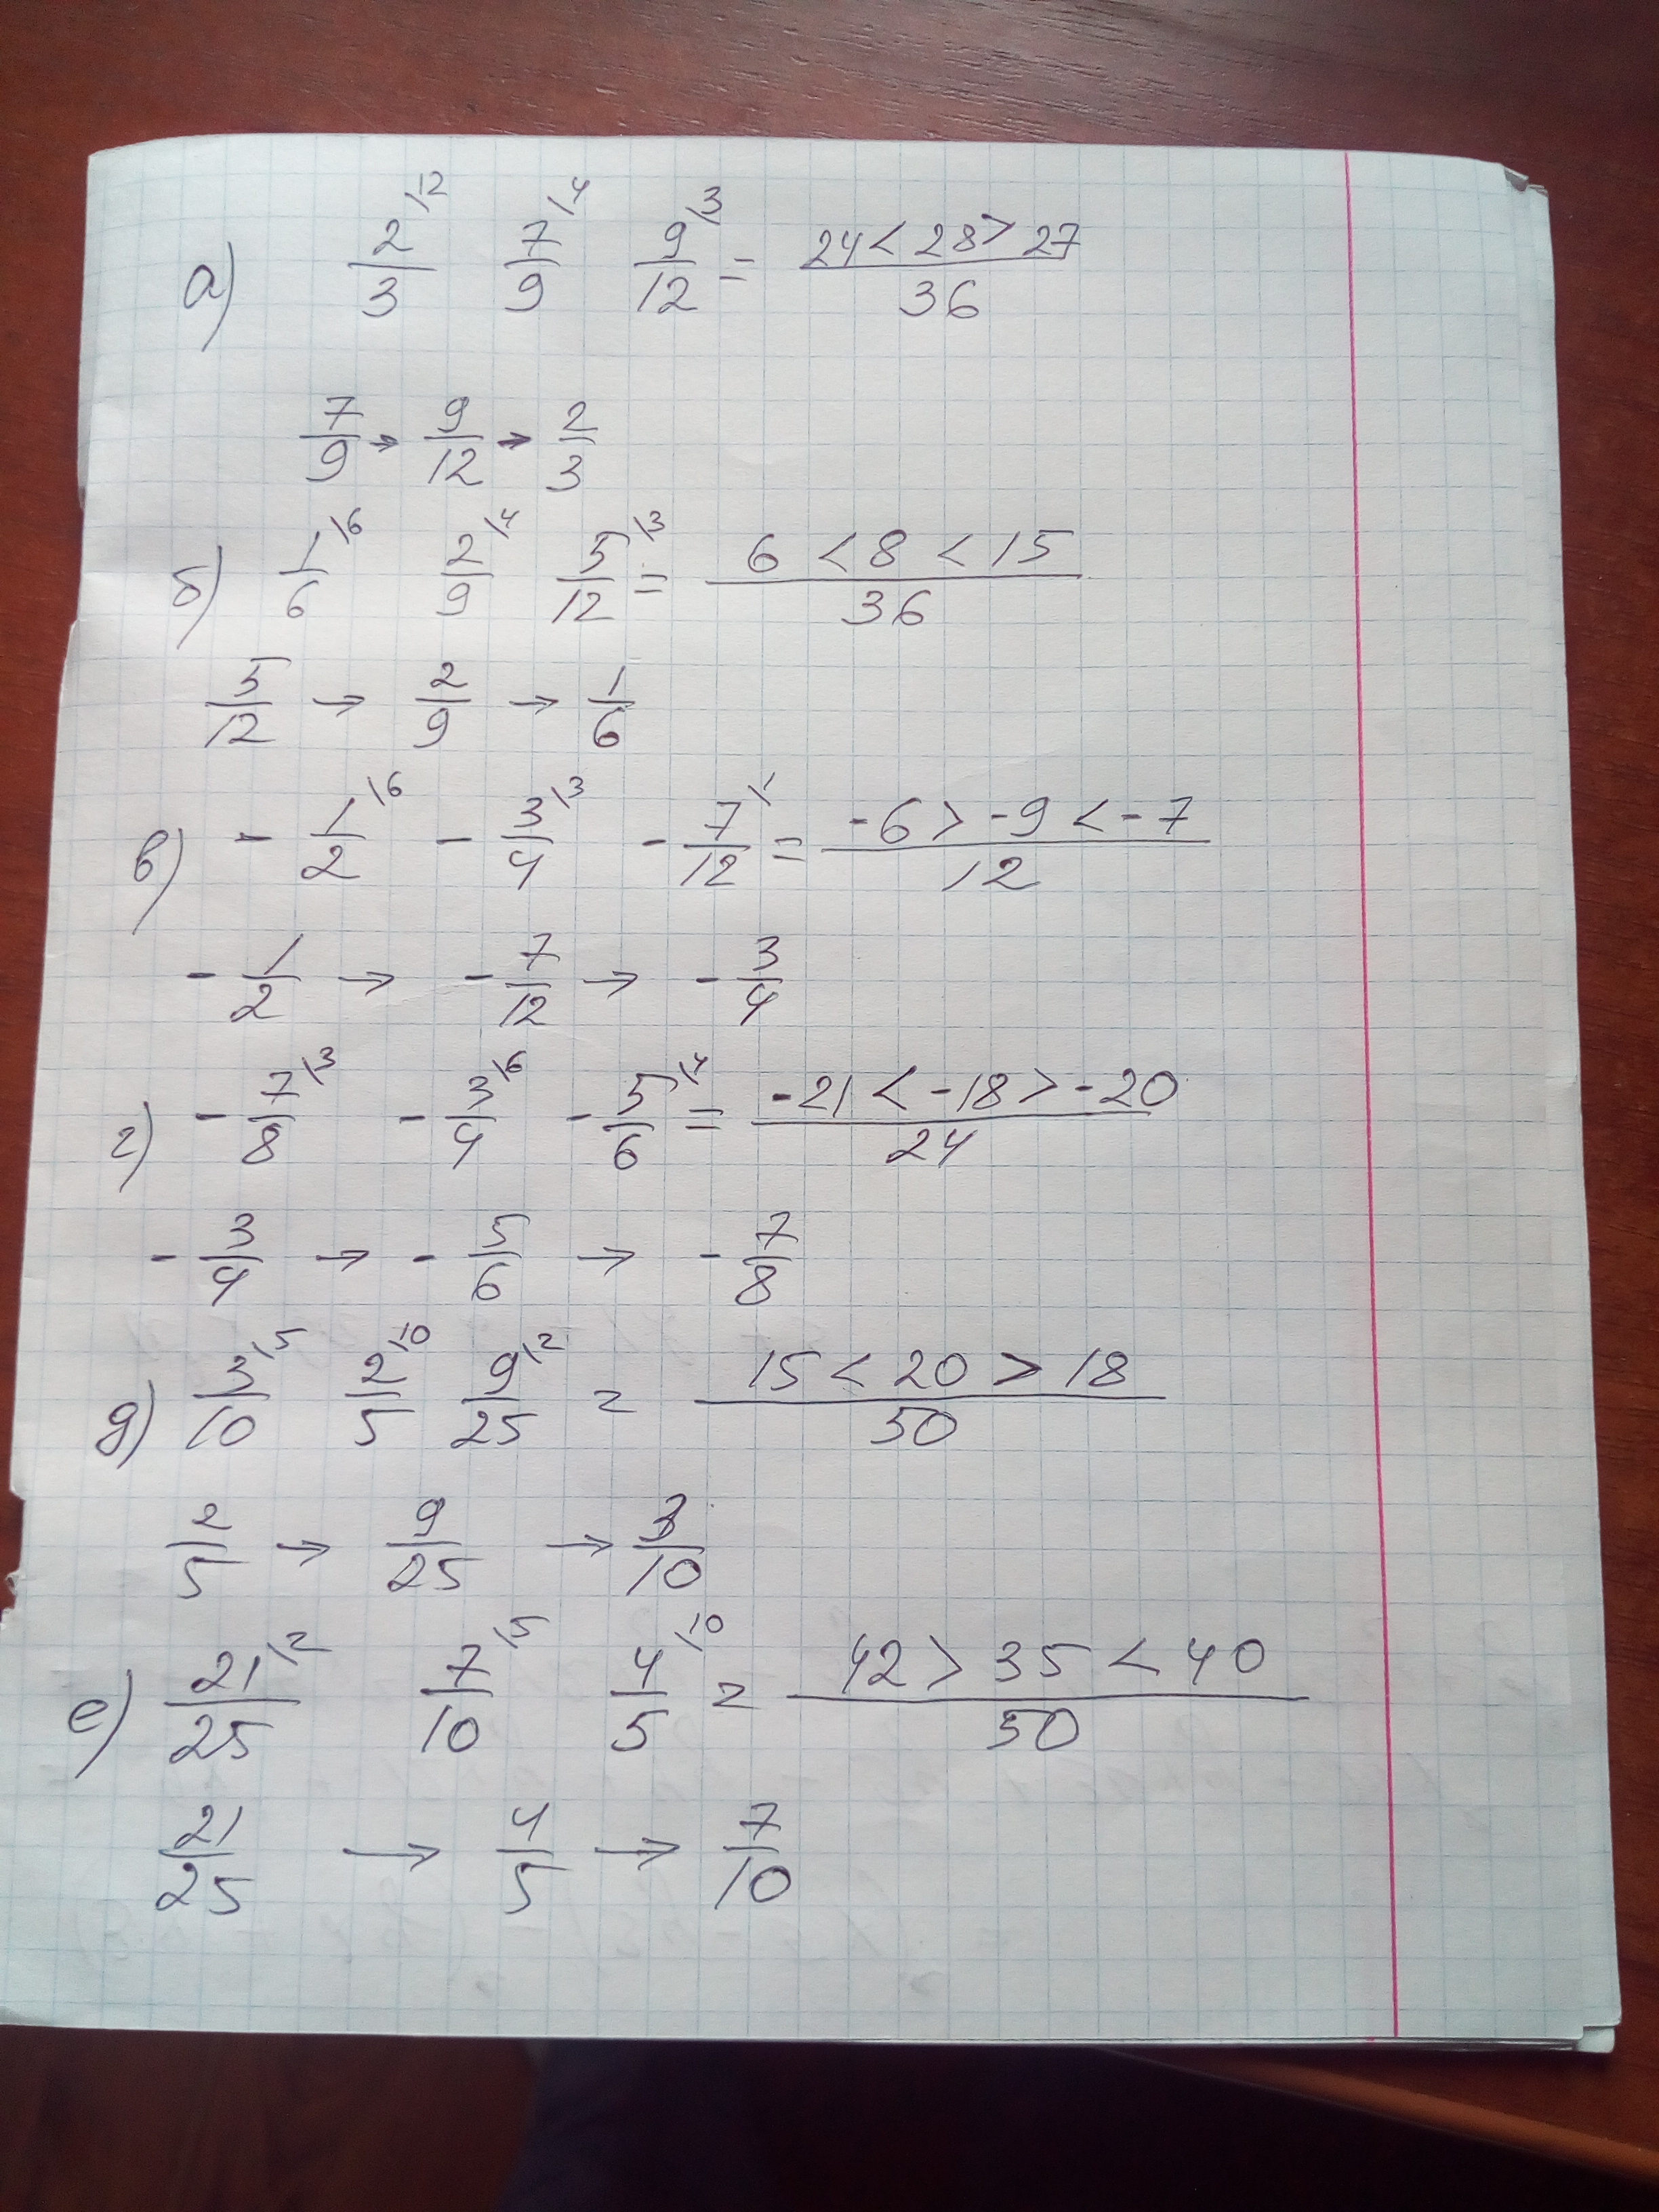 а) 2/3 \12 7/9 \4 9/12 \3 = 24 < 28 > 27 / 36
7/9 → 9/12 → 2/3
б) 1/6 \6 2/9 \4 5/12 \3 = 6 < 8 < 15 / 36
5/12 → 2/9 → 1/6
в) - 1/2 \6 - 3/4 \3 - 7/12 \1 = -6 > -9 < -7 / 12
- 1/2 → - 7/12 → - 3/4
г) - 7/8 \3 - 3/4 \6 - 5/6 \4 = -21 < -18 > -20 / 24
- 3/4 → - 5/6 → - 7/8
д) 3/10 \5 2/5 \10 9/25 \2 = 15 < 20 > 18 / 50
2/5 → 9/25 → 3/10
е) 21/25 \2 7/10 \5 4/5 \10 = 42 > 35 < 40 / 50
21/25 → 4/5 → 7/10